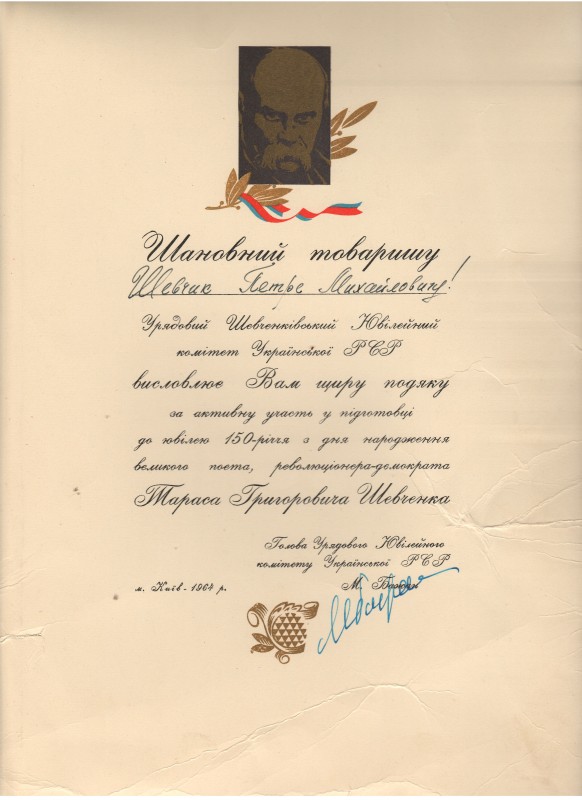 Шановний товаришу
Шевчик Петре Михайловичу!
Урядовий Шевченківський Ювілейний
комітет Української РСР
висловлює Вам щиру подяку
за активну участь у підготовці
до ювілею 150-річчя з дня народження
великого поета, революціонера-демократа
Тараса Григоровича Шевченка
Голова Урядового Ювілейного
комітету Української РСР
м. Київ - 1964 р.
М. Бажан